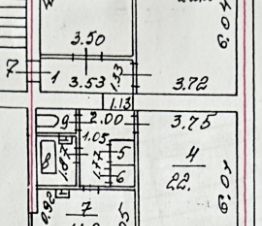 3.50
6.04
7
1
3.53
1.33
3.72
1.13
9
2.00
3.75
1.05
8
1.67
1.77
5
4
22.
6
6.01
7
0.92